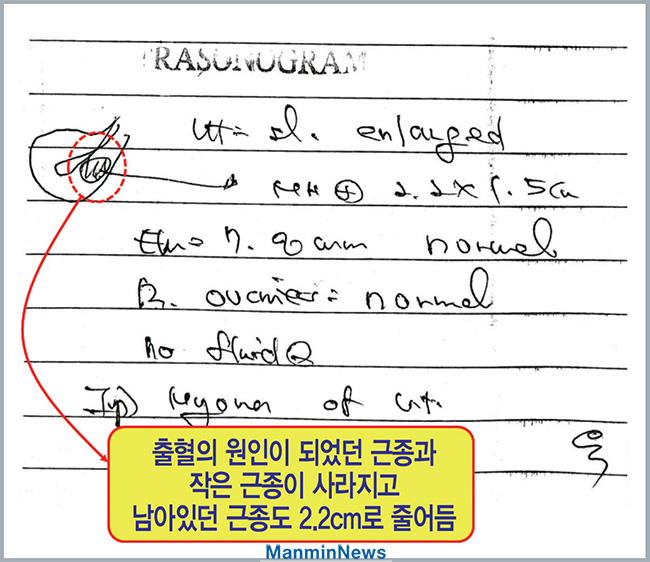 TRASONOGRAM
Ut = sl. enlarged
⊕ 2.2 x 1.5 cm
7.9 mm normal
B. ovaries = normal
no fluid
of ut.
출혈의 원인이 되었던 근종과
작은 근종이 사라지고
남아있던 근종도 2.2cm로 줄어듬
ManminNews